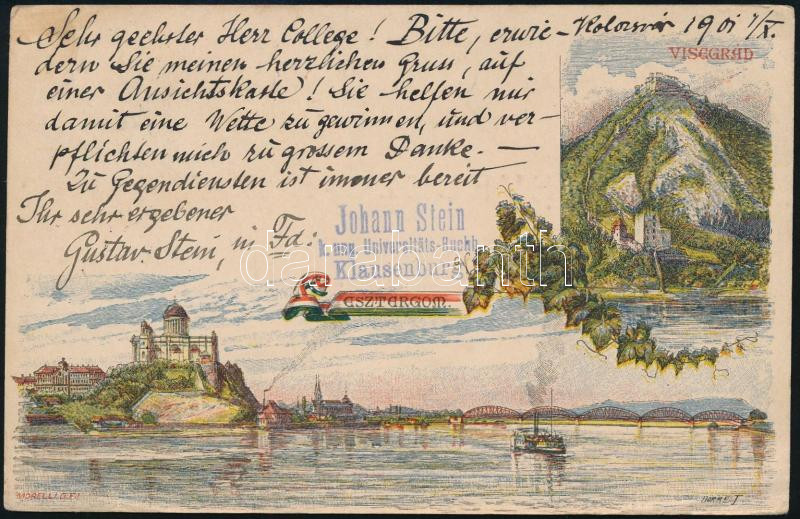 Kolozsvár 1901 1/X.
Sehr geehrter Herr College! Bitte, erwie-
dern Sie meinen herzlichen Gruss, auf
einer Ansichtskarte! Sie helfen mir
damit eine Wette zu gewinnen, und ver-
pflichten mich zu grossem Danke. —
Zu Gegendiensten ist immer bereit
Ihr sehr ergebener
Gustav Stein, in Fa:
Johann Stein
k. ung. Universitäts-Buchh.
Klausenburg
VISEGRÁD
ESZTERGOM.
darabanth
MORELLI G.F.